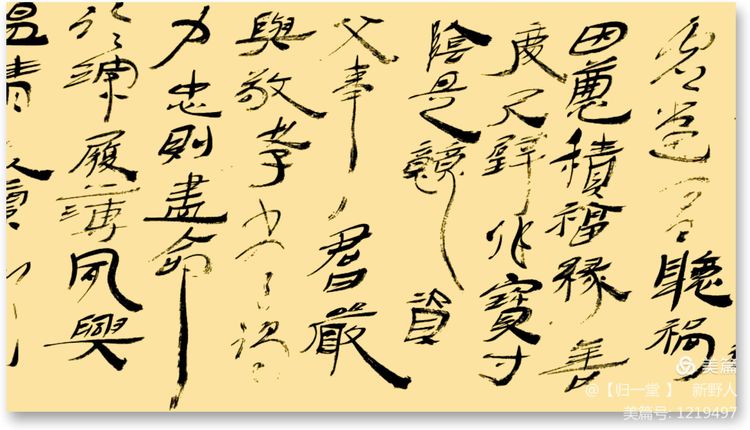 虛堂習聽禍
因惡積福緣善
慶尺璧非寶寸
陰是競資
父事君曰嚴
與敬孝當竭
力忠則盡命
臨深履薄夙興
溫清
美篇
@【归一堂 】 新野人
美篇号: 1219497